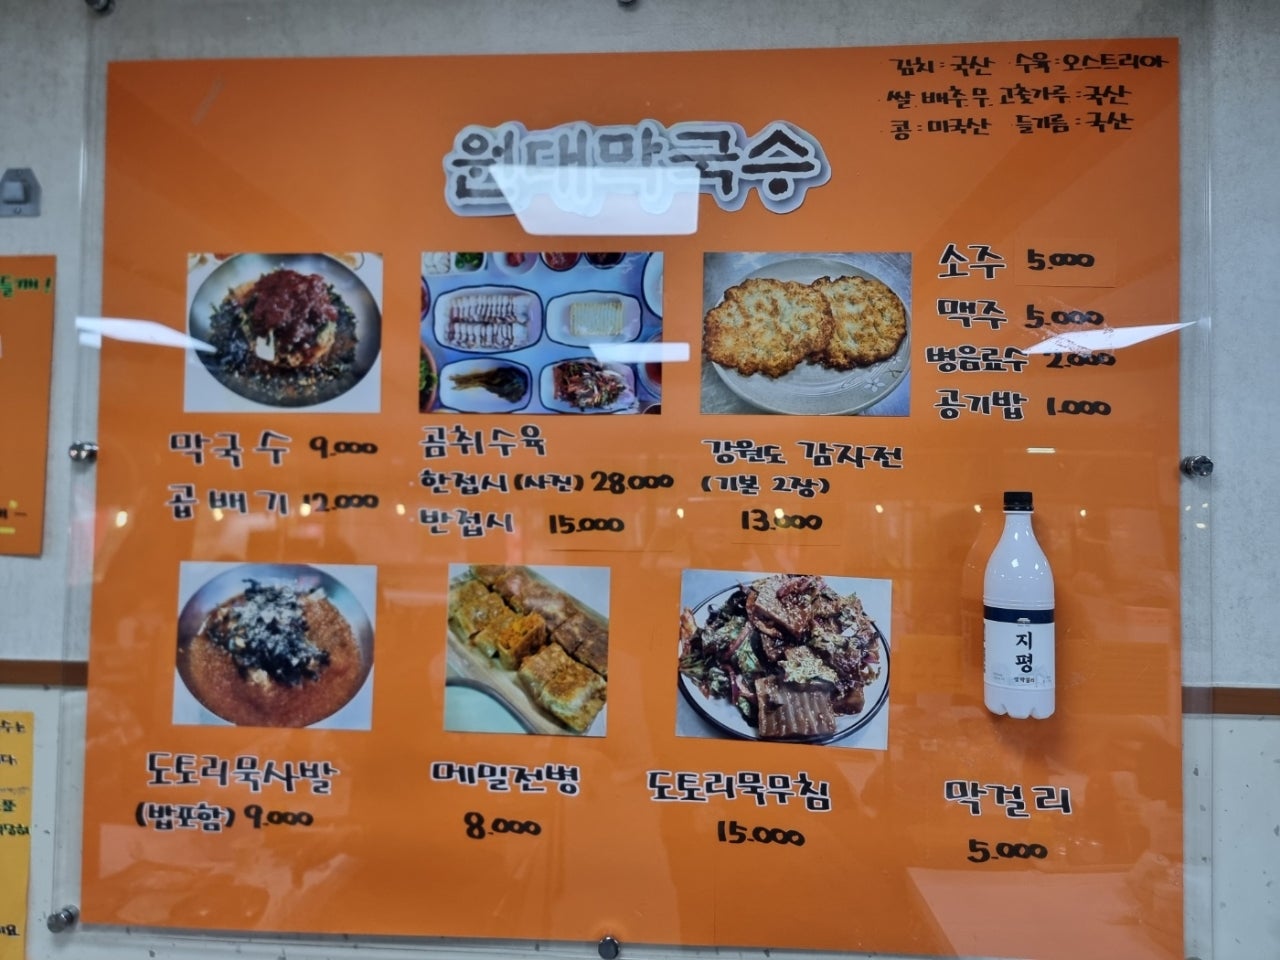 김치:국산 수육:오스트리아
쌀 배추 무 고춧가루:국산
콩:미국산 들기름:국산
원대막국수
소주 5.000
맥주 5.000
병음료수 2.000
공기밥 1.000
막국수 9.000
곱배기 12.000
곰취수육
한접시(사진) 28.000
반접시 15.000
강원도 감자전
(기본 2장)
13.000
지평
도토리묵사발
(밥포함) 9.000
메밀전병
8.000
도토리묵무침
15.000
막걸리
5.000